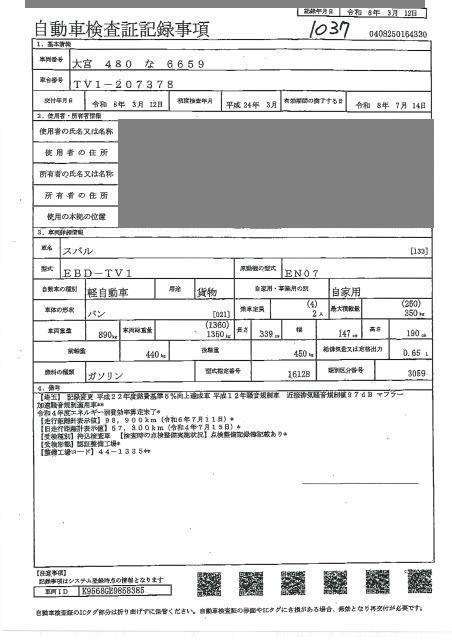 記録年月日 令和 8年 3月 12日
自動車検査証記録事項
1037
0408250164330
1. 基本情報
車両番号 大宮 480 な 6659
車台番号 TV1-207378
交付年月日 令和 8年 3月 12日 初度検査年月 平成 24年 3月 有効期間の満了する日 令和 8年 7月 14日
2. 使用者・所有者情報
使用者の氏名又は名称
使用者の住所
所有者の氏名又は名称
所有者の住所
使用の本拠の位置
3. 車両詳細情報
車名 スバル [133]
型式 EBD-TV1 原動機の型式 EN07
自動車の種別 軽自動車 用途 貨物 自家用・事業用の別 自家用
車体の形状 バン [021] 乗車定員 (4) 2人 最大積載量 (250) 350kg
車両重量 890kg 車両総重量 (1360) 1350kg 長さ 339cm 幅 147cm 高さ 190cm
前軸重 440kg 後軸重 450kg 総排気量又は定格出力 0.65 L
燃料の種類 ガソリン 型式指定番号 16128 類別区分番号 3059
4. 備考
【埼玉】 記録変更 平成22年度燃費基準5%向上達成車 平成12年騒音規制車 近接排気騒音規制値97dB マフラー
加速騒音規制適用車**
令和4年度エネルギー消費効率算定未了*
【走行距離計表示値】98,900km(令和6年7月11日)*
【旧走行距離計表示値】57,300km(令和4年7月15日)*
【受検種別】持込検査車 【検査時の点検整備実施状況】点検整備記録簿記載あり*
【受検形態】認証整備工場*
【整備工場コード】44-1335**
【注意事項】
記録事項はシステム登録時点の情報となります
車両ID K9568GE9858385
自動車検査証のICタグ部分は折り曲げずに保管ください。自動車検査証の券面やICタグに含損がある場合、有償となり再交付が必要です。